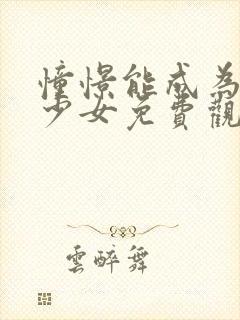 憧憬能成為
少女免費觀
雲醉舞